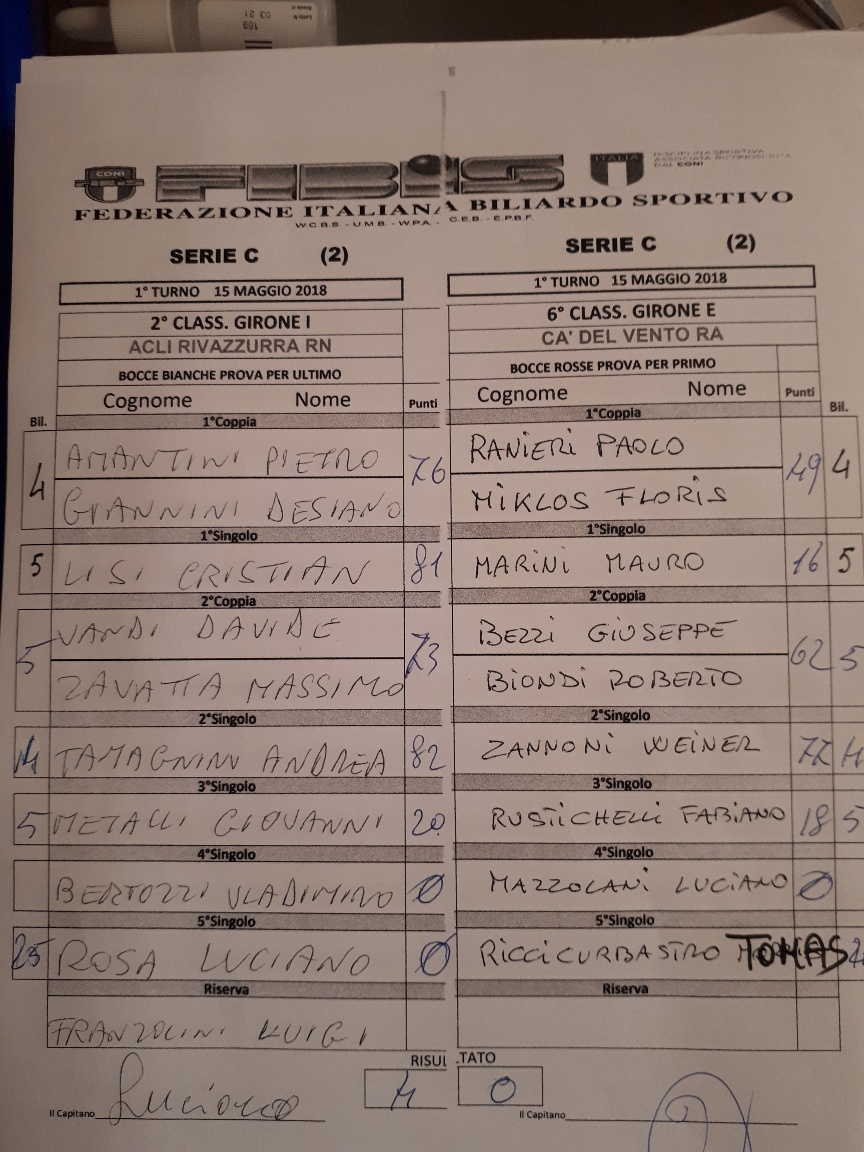 03 21
169
CONI
FIBiS
ITALIA
DISCIPLINA SPORTIVA
ASSOCIATA RICONOSCIUTA
DAL CONI
FEDERAZIONE ITALIANA BILIARDO SPORTIVO
W.C.B.S - U.M.B. - W.P.A. - C.E.B. - E.P.B.F.
SERIE C (2)
1° TURNO 15 MAGGIO 2018
2° CLASS. GIRONE I
ACLI RIVAZZURRA RN
BOCCE BIANCHE PROVA PER ULTIMO
Cognome Nome Punti
Bil.
1°Coppia
4 AMANTINI PIETRO 76
GIANNINI DESIANO
1°Singolo
5 LISI CRISTIAN 81
2°Coppia
5 VANDI DAVIDE 73
ZAVATTA MASSIMO
2°Singolo
4 TAMAGNINI ANDREA 82
3°Singolo
5 METALLI GIOVANNI 20
4°Singolo
BERTOZZI VLADIMIRO 0
5°Singolo
25 ROSA LUCIANO 0
Riserva
FRANZOLINI LUIGI
SERIE C (2)
1° TURNO 15 MAGGIO 2018
6° CLASS. GIRONE E
CA' DEL VENTO RA
BOCCE ROSSE PROVA PER PRIMO
Cognome Nome Punti
Bil.
1°Coppia
RANIERI PAOLO 49 4
MIKLOS FLORIS
1°Singolo
MARINI MAURO 16 5
2°Coppia
BEZZI GIUSEPPE 62 5
BIONDI ROBERTO
2°Singolo
ZANNONI WEINER 77 4
3°Singolo
RUSTICHELLI FABIANO 18 5
4°Singolo
MAZZOLANI LUCIANO 0
5°Singolo
RICCICURBASTRO TOMAS
Riserva
RISULTATO
4 0
Il Capitano Luciano
Il Capitano